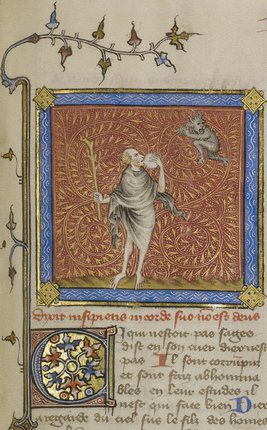 Dixit insipiens in corde suo no est deus
Cil qui nestoit pas sages
dist en son cuer diex nest
pas Il sont corrumpu
et sont faiz abhomina
bles en leur estudes il
nest qui face bien D
regarde du ciel sus les filz des homes